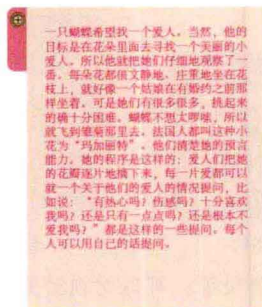 一只蝴蝶希望找一个爱人。当然，他的
目标是在花朵里面去寻找一个美丽的小
爱人。所以他就把她们仔细地观察了一
番。每朵花都很文静地、庄重地坐在花
枝上，就好像一个姑娘在婚约之前那
样坐着。可是她们有很多很多，挑起来
的确十分困难。蝴蝶不想太啰唆，所以
就飞到雏菊那里去。法国人都叫这种小
花为“玛加丽特”。他们清楚她的预言
能力。她的程序是这样的：爱人们把她
的花瓣逐片地摘下来，每一片爱都可以
就一个关于他们的爱人的情况提问，比
如说：“有热心吗？伤感吗？十分喜欢
我吗？还是只有一点点吗？还是根本不
爱我吗？”都是这样的一些提问。每个
人可以用自己的话提问。